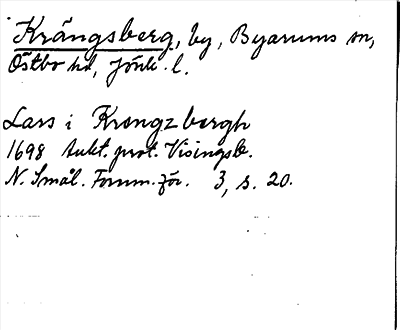 Krängsberg, by, Byarums sn,
Östbo hd, Jönk. l.
Lars i Krengzbergh
1698 Aukt. prot. Visingsb.
N. Smål. Fornm.för. 3, s. 20.